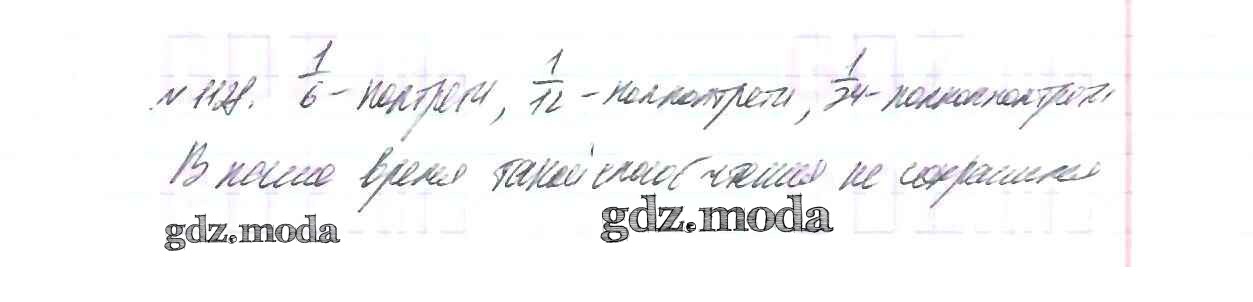 № 1128. 1/6 - полтрети, 1/12 - полполтрети, 1/24 - полполполтрети
В наше время такой способ чтения не сохранился
gdz.moda gdz.moda